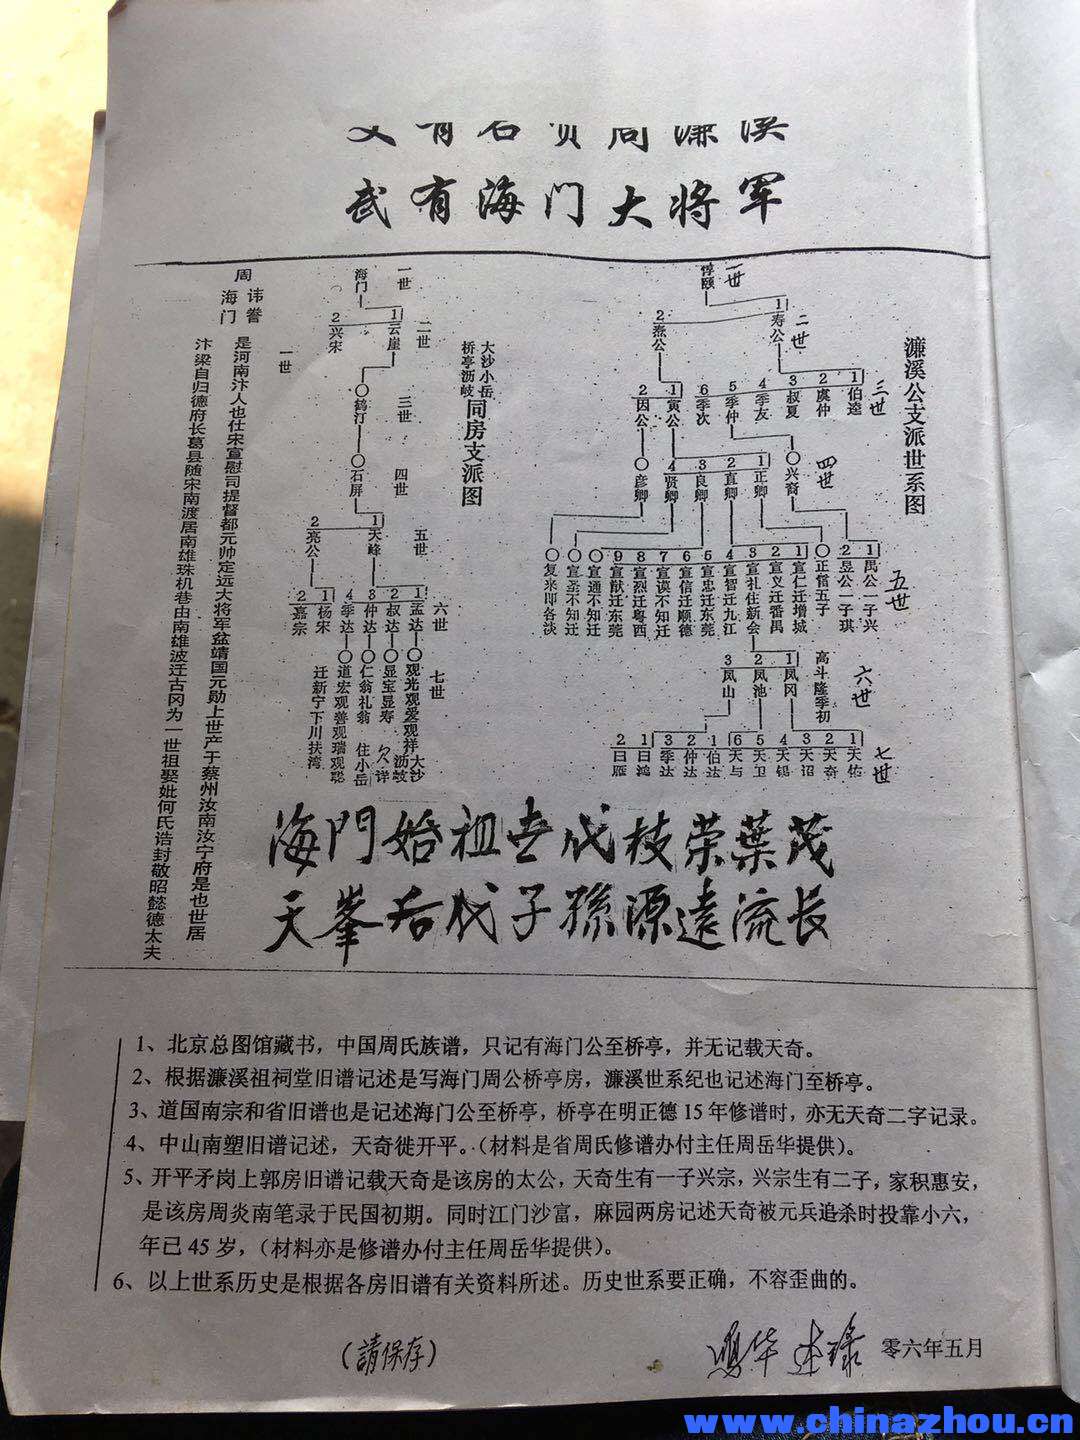 文有名贤周濂溪
武有海门大将军
濂溪公支派世系图
一世
二世
三世
四世
五世
六世
七世
惇颐
1寿公
2焘公
1伯逵
2虞仲
3叔夏
4季友
5季仲
6季次
1寅公
2因公
兴裔
1正卿
2直卿
3良卿
4贤卿
彦卿
1禺公一子兴
2昱公一子琪
正僧五子
1宣仁迁增城
2宣义迁番禺
3宣礼住新会
4宣智迁九江
5宣忠迁东莞
6宣信迁顺德
7宣谟不知迁
8宣烈迁粤西
9宣猷迁东莞
宣通不知迁
宣圣不知迁
高斗隆季初
1凤冈
2凤池
3凤山
1天佑
2天奇
3天诏
4天锡
5天卫
6天与
1伯达
2仲达
3季达
1曰鸿
2曰雁
大沙小岳
桥亭沥岐
同房支派图
一世
二世
三世
四世
五世
六世
七世
海门
1云崖
2兴宋
鹤汀
石屏
1天峰
2亮公
1孟达
2叔达
3仲达
4季达
1杨宋
2嘉宗
观光观爱观祥大沙
显宝显寿
沥岐
欠详
仁翁礼翁 住小岳
道宏观善观瑞观聪
迁新宁下川扶湾
一世
周海门
讳誊
是河南汴人也仕宋宣慰司提督都元帅定远大将军盆靖国元勋上世产于蔡州汝南汝宁府是也世居
汴梁自归德府长葛县随宋南渡居南雄珠机巷由南雄波迁古冈为一世祖娶妣何氏诰封敬昭懿德太夫
海門始祖世代枝荣葉茂
天峯后代子孫源遠流长
1、北京总图馆藏书，中国周氏族谱，只记有海门公至桥亭，并无记载天奇。
2、根据濂溪祖祠堂旧谱记述是写海门周公桥亭房，濂溪世系纪也记述海门至桥亭。
3、道国南宗和省旧谱也是记述海门公至桥亭，桥亭在明正德15年修谱时，亦无天奇二字记录。
4、中山南塑旧谱记述，天奇徙开平。（材料是省周氏修谱办付主任周岳华提供）。
5、开平矛岗上郭房旧谱记载天奇是该房的太公，天奇生有一子兴宗，兴宗生有二子，家积惠安，
是该房周炎南笔录于民国初期。同时江门沙富，麻园两房记述天奇被元兵追杀时投靠小六，
年已45岁，（材料亦是修谱办付主任周岳华提供）。
6、以上世系历史是根据各房旧谱有关资料所述。历史世系要正确，不容歪曲的。
（請保存）
零六年五月
www.chinazhou.cn